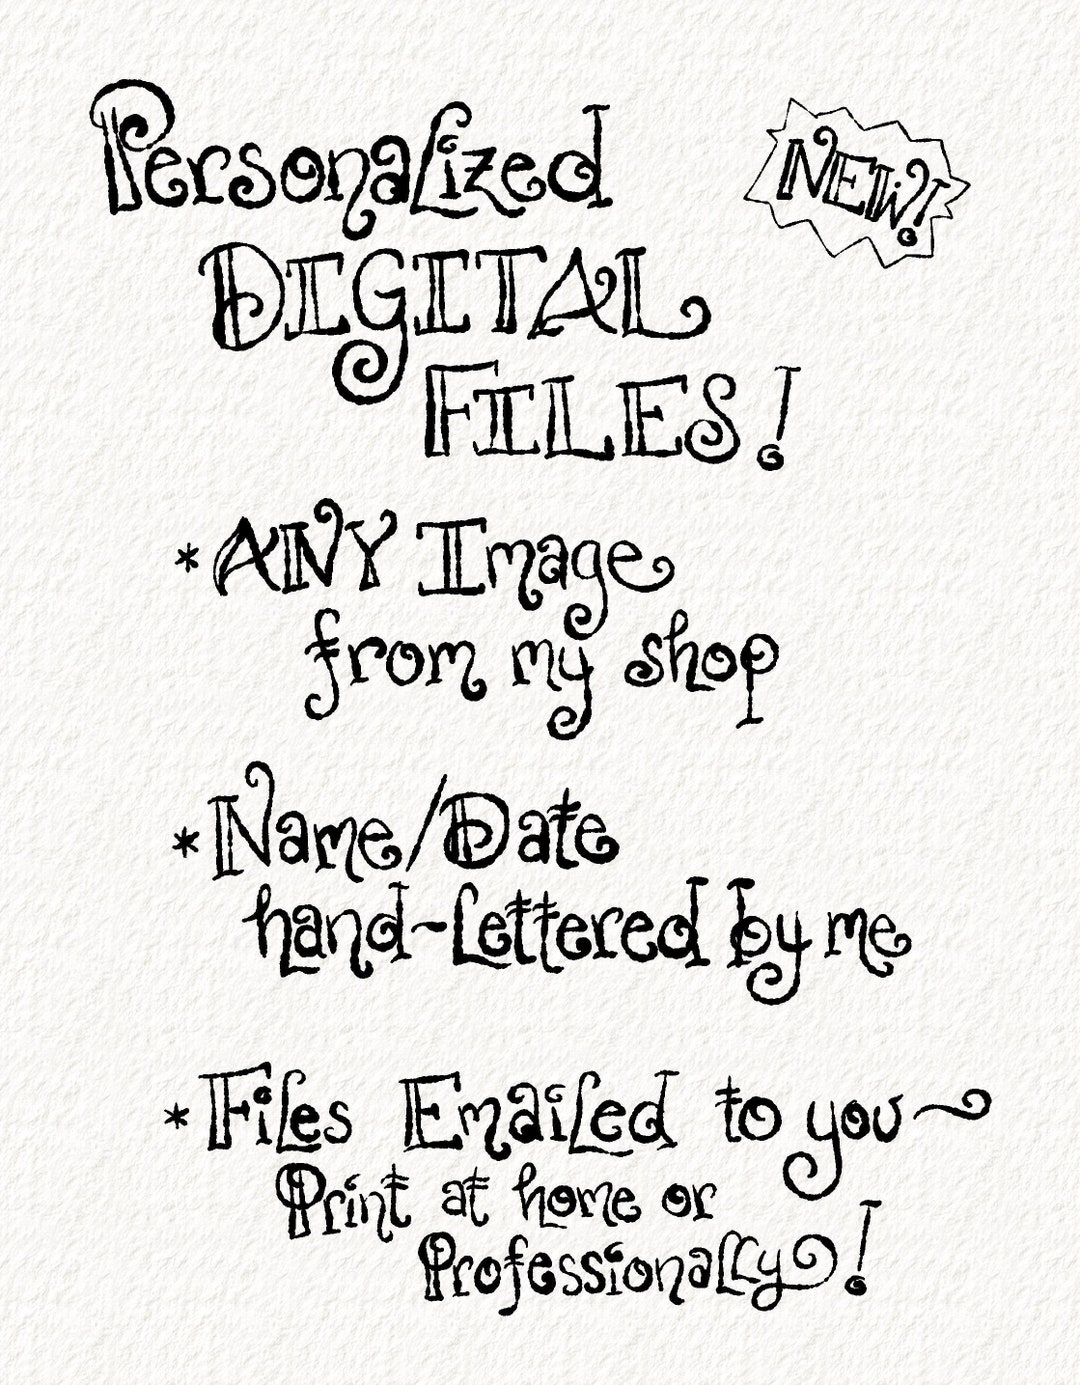 Personalized
NEW!
DIGITAL
FILES!
*ANY Image
from my shop
*Name/Date
hand-lettered by me
*Files Emailed to you~
Print at home or
Professionally!